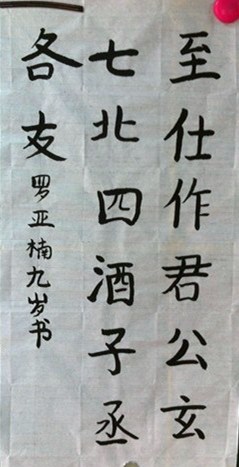 至仕作君公玄
七北四酒子丞
各友罗亚楠九岁书